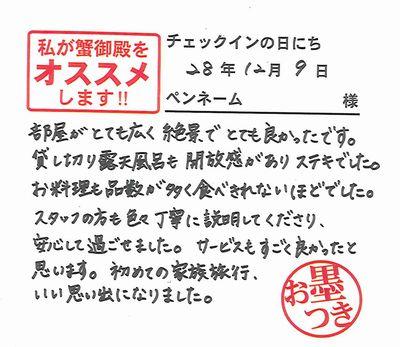 私が蟹御殿を
オススメ
します!!
チェックインの日にち
28年12月9日
ペンネーム 様
部屋がとても広く絶景でとても良かったです。
貸し切り露天風呂も開放感がありステキでした。
お料理も品数が多く食べきれないほどでした。
スタッフの方も色々丁寧に説明してくださり、
安心して過ごせました。サービスもすごく良かったと
思います。初めての家族旅行、
いい思い出になりました。
お墨つき